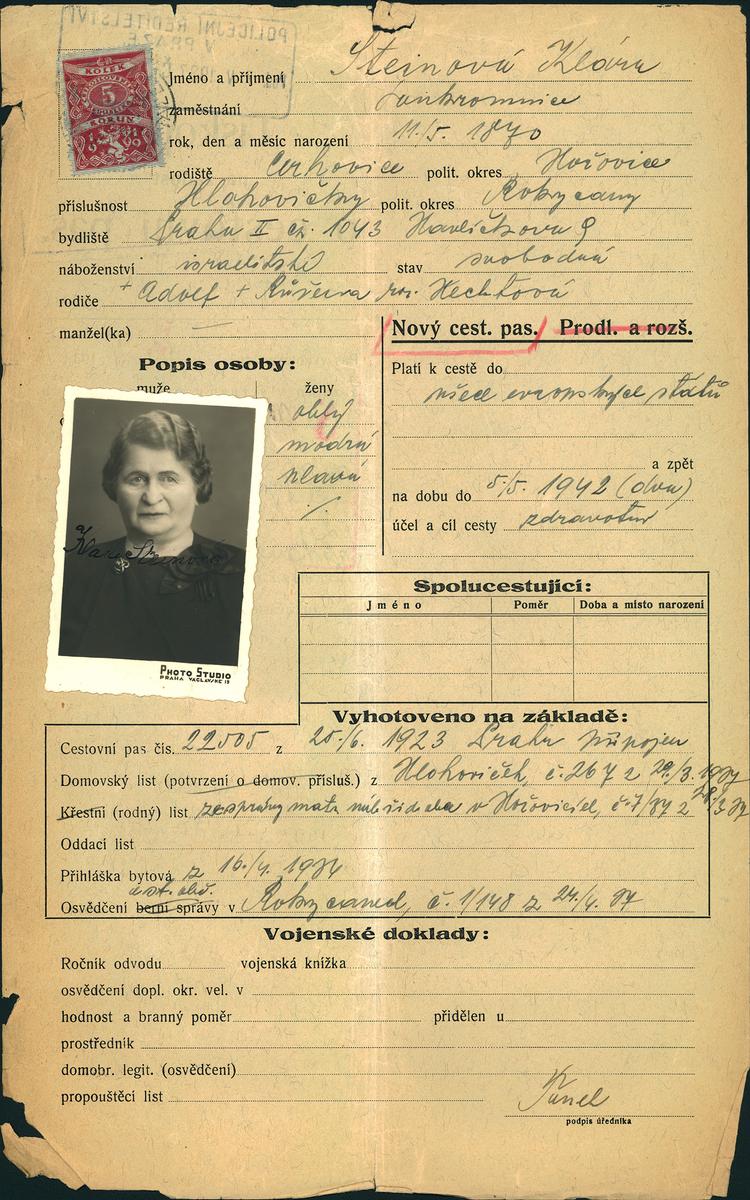 POLICEJNÍ ŘEDITELSTVÍ
V PRAZE
KOLEK
5
KORUN
Jméno a příjmení Steinová Klára
zaměstnání soukromnice
rok, den a měsíc narození 11./5. 1870
rodiště Cerhovice polit. okres Hořovice
příslušnost Hlohovičky polit. okres Rokycany
bydliště Praha II čp. 1043 Havlíčkova 9
náboženství israelitské stav svobodná
rodiče + Adolf + Růžena roz. Hechtová
manžel(ka) —
Nový cest. pas. Prodl. a rozš.
Popis osoby:
muže ženy
oblý
modrá
hlavá
./.
Platí k cestě do
všech evropských států
a zpět
na dobu do 5./5. 1942 (dva)
účel a cíl cesty zdravotní
Klara Steinová
PHOTO STUDIO
PRAHA VÁCLAVSKÉ 19
Spolucestující:
Jméno Poměr Doba a místo narození
Vyhotoveno na základě:
Cestovní pas čís. 22505 z 25./6. 1923 Praha připojen
Domovský list (potvrzení o domov. přísluš.) z Hlohoviček, č. 267 z 29./3. 1937
Křestní (rodný) list ze správy mat. náb. žid. obce v Hořovicích, č. 7/37 z 28/3 37
Oddací list
Přihláška bytová z 16./4. 1934
Osvědčení berní správy v Rokycanech, č. 1/148 z 24./4. 37
Vojenské doklady:
Ročník odvodu vojenská knížka
osvědčení dopl. okr. vel. v
hodnost a branný poměr přidělen u
prostředník
domobr. legit. (osvědčení)
propouštěcí list
podpis úředníka